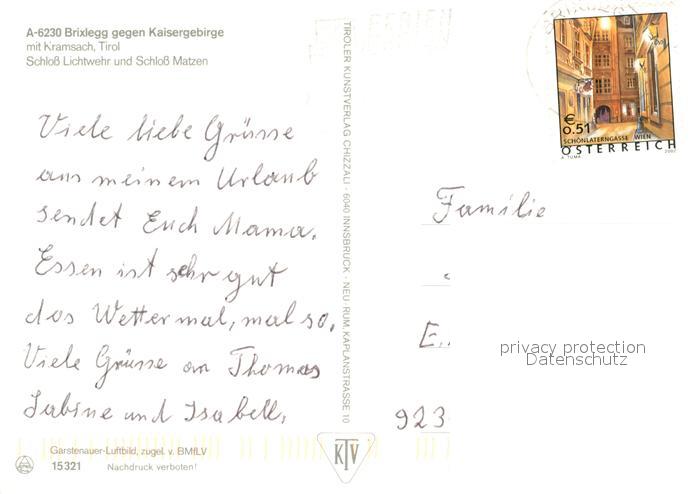 A-6230 Brixlegg gegen Kaisergebirge
mit Kramsach, Tirol
Schloß Lichtwehr und Schloß Matzen
Viele liebe Grüsse
aus meinem Urlaub
sendet Euch Mama.
Essen ist sehr gut
das Wetter mal, mal so.
Viele Grüsse an Thomas
Sabine und Isabell.
Garstenauer-Luftbild, zugel. v. BMfLV
15321 Nachdruck verboten!
TIROLER KUNSTVERLAG CHIZZALI · 6040 INNSBRUCK · NEU RUM, KAPLANSTRASSE 10
KTV
€
0.51
SCHÖNLATERNGASSE WIEN
ÖSTERREICH
A. TUMA 2002
Familie
E.
923
privacy protection
Datenschutz